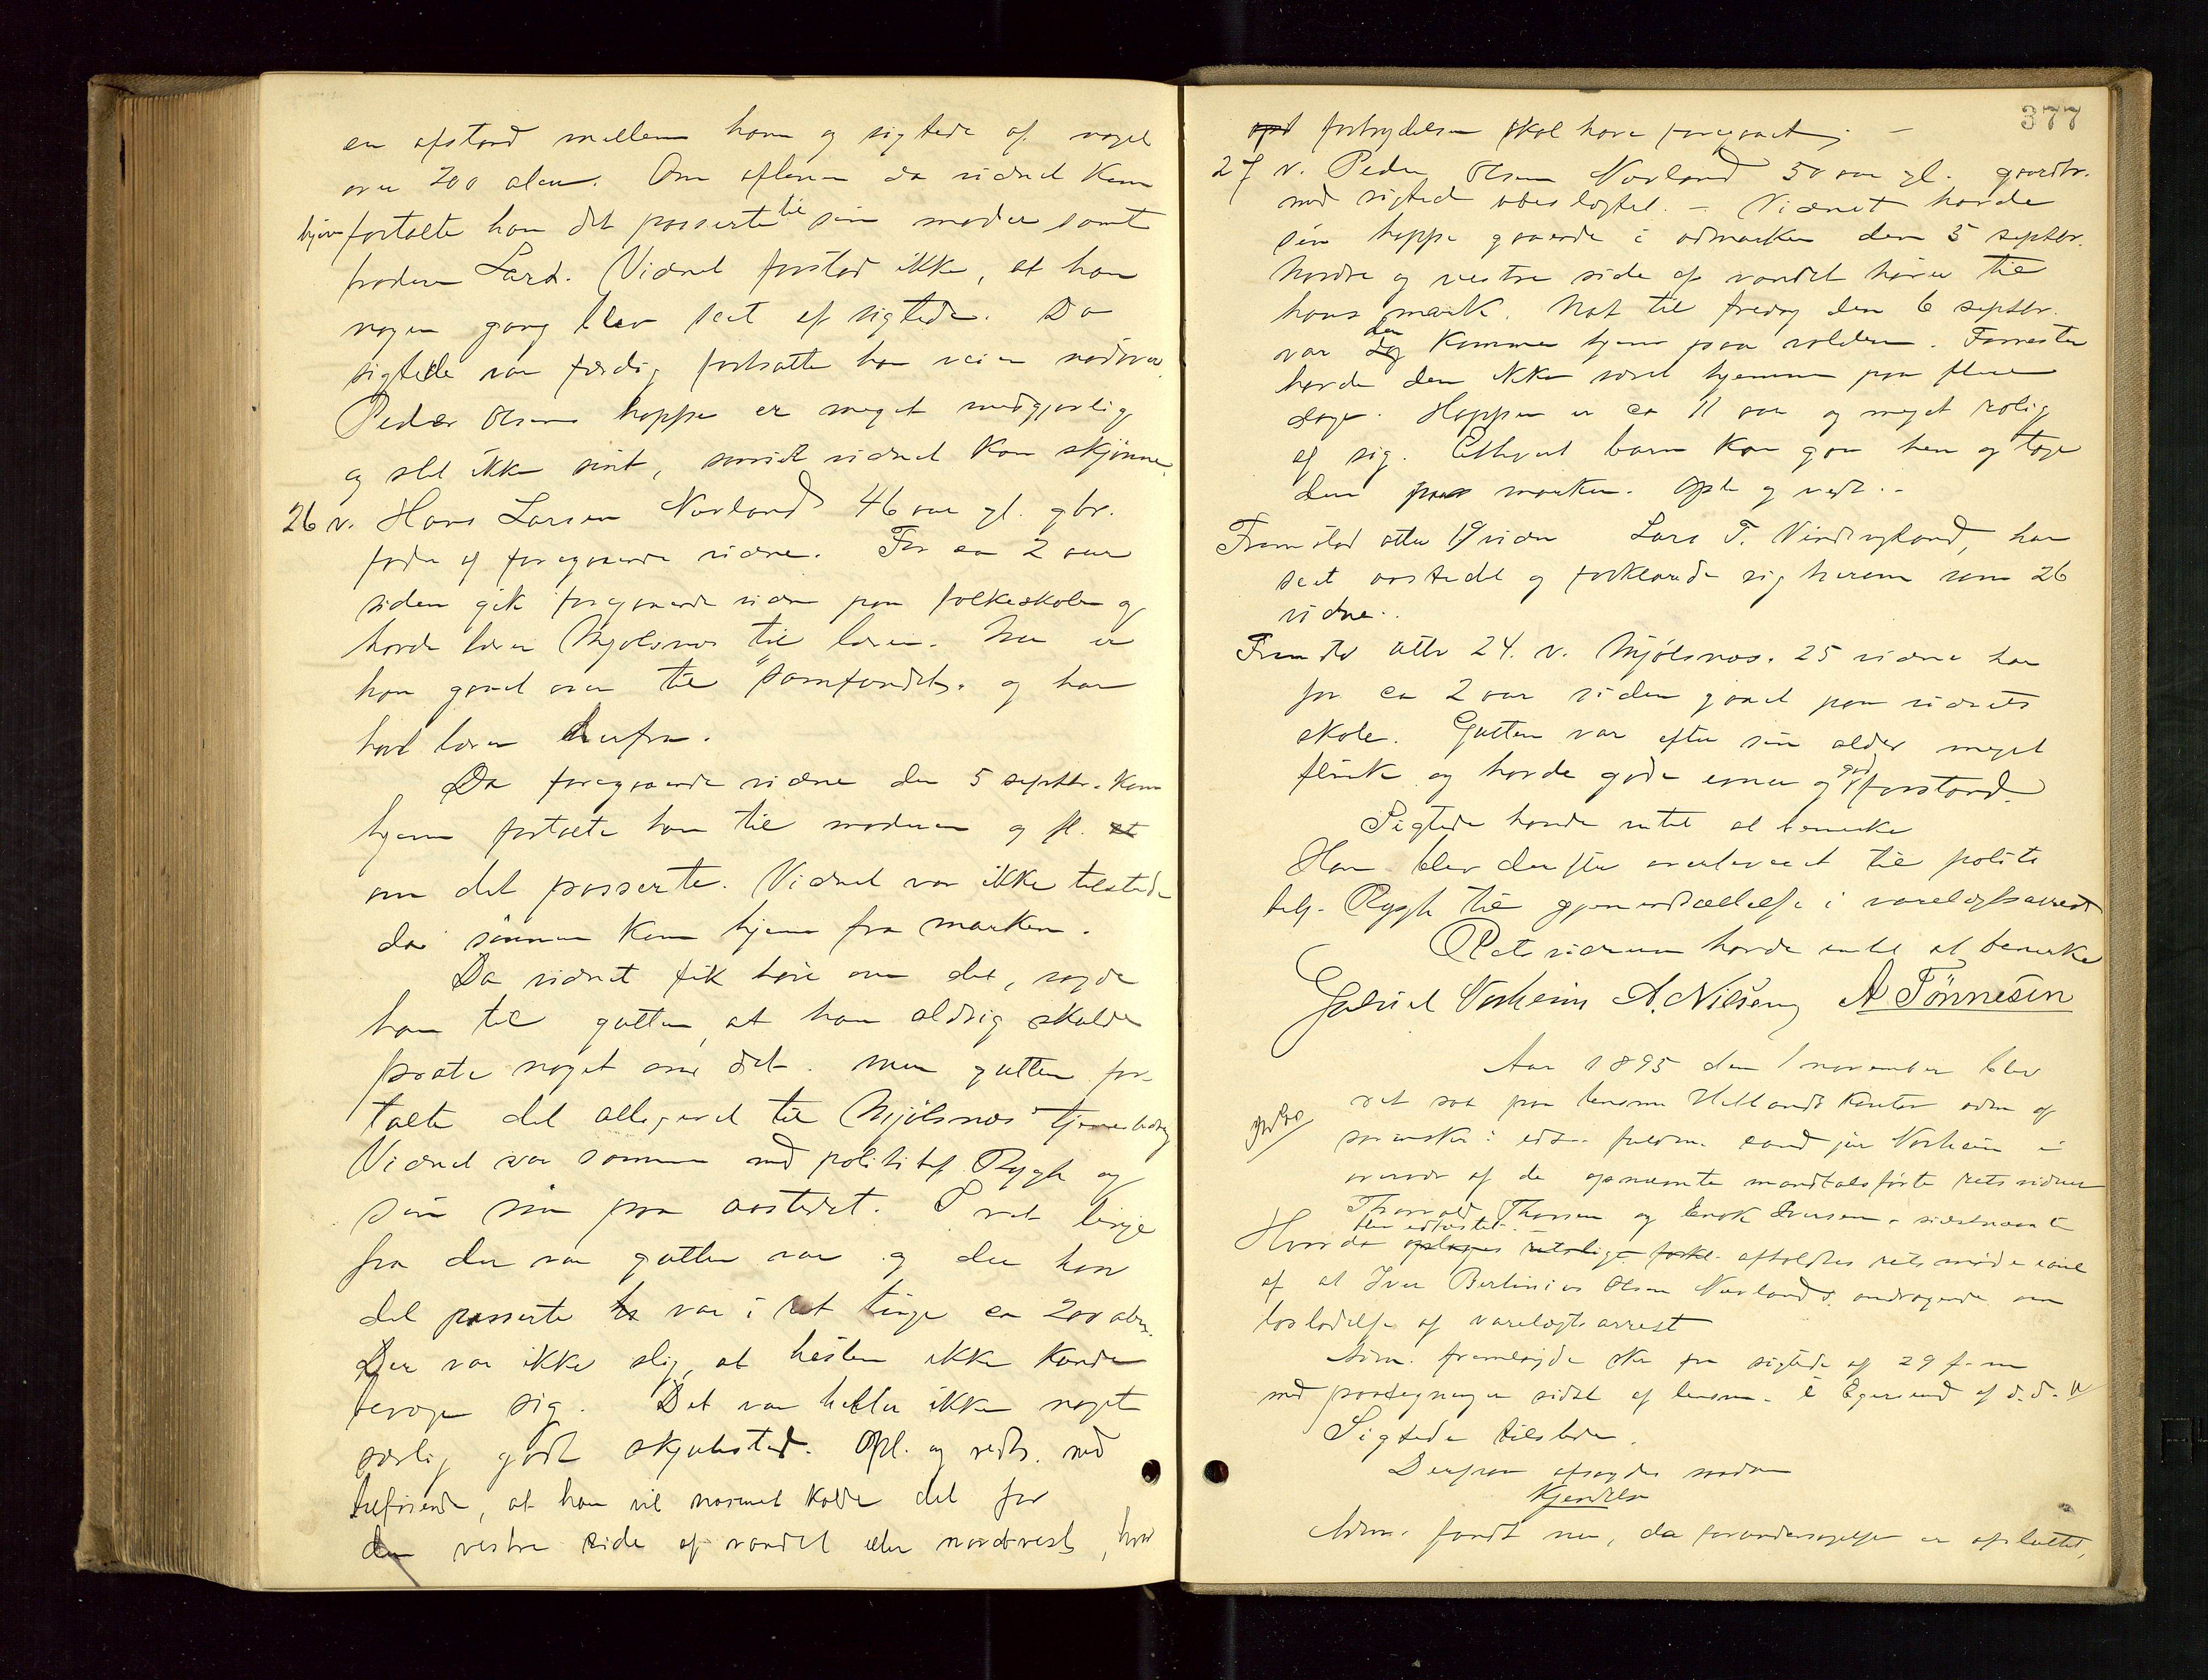 en afstand mellem ham og sigtede af noget
over 200 alen. Om aftenen da vidnet kom
hjem fortalte han det passerte til sin moder samt
broderen Lars. Vidnet forstod ikke, at han
nogen gang blev seet af sigtede. Da
sigtede var færdig fortsatte han veien
Peder Olsens hoppe er meget medgjørlig
og slet ikke sint, saavidt vidnet kan skjønne.
26 v. Hans Larsen Navland 46 aar gl. gbr.
fader af foregaaende vidne. For ca 2 aar
siden gik foregaaende vidne paa folkeskolen og
havde lærer Mjølsnes til lærer. Nu er
han gaaet over til "Samfundet" og har
havt lærer derfra.
Da foregaaende vidne den 5 septbr. kom
hjem fortalte han til moderen og fl.
om det passerte. Vidnet var ikke tilstede
da sønnen kom hjem fra marken.
Da vidnet fik høre om det, sagde
han til gutten, at han aldrig skulde
prate noget om det. Men gutten for-
talte det alligevel til Mjølsnes
Vidnet var sammen med politibtj. Rygh og
sin søn paa aastedet. I ret linje
fra der var gutten var og der hvor
det passerte var i ret linje ca 200 alen.
Der var ikke slig, at hesten ikke kunde
bevæge sig. Det var heller ikke noget
særlig godt skjulested. Opl. og vedt. med
tilføiende, at han vil nærmest kalde det for
den vestre side af vandet eller nordvest, hvor
377
forbrydelsen skal have foregaaet; -
27 v. Peder Olsen Navland 50 aar gl. gaardbr.
med sigtede ubeslægtet. - Vidnet havde
sin hoppe gaaende i udmarken den 5 septbr.
Nordre og vestre side af vandet hører til
hans mark. Nat til fredag den 6 septbr.
var den kommen hjem paa volden. Forresten
havde den ikke været hjemme paa flere
dage. Hoppen er ca 11 aar og meget rolig
af sig. Ethvert barn kan gaa hen og tage
den paa marken. Opl. og vedt. -
Fremstod atter 19 vidne Lars T. Vindingland, har
seet aastedet og forklarede sig herom som 26
vidne.
Fremstod atter 24. v. Mjølsnes. 25 vidne har
for ca 2 aar siden gaaet paa vidnets
skole. Gutten var efter sin alder meget
flink og havde gode evner og god forstand.
Sigtede havde intet at bemerke
Han blev derefter overleveret til politi
btj. Rygh til gjenindsættelse i varetægtsarrest
Retsvidnerne havde intet at bemerke
Gabriel Vasheim A. Nilsen A Tönnesen
Aar 1895 den 1 november blev
ret sat paa lensm. Hetlands kontor adm. af
sorenskr: eds. fuldm. cand jur Vasheim i
overvær af de opnævnte mandtalsførte retsvidner
Thorvald Thorsen og Enok Iversen - sidstnævnte
blev edfæstet.
Hvorda oplages retslige forkl. afholdtes retsmøde i anl
af at Iver Bertinius Olsen Navlands andragende om
løsladelse af varetægtsarrest
Adm. fremlagde skr fra sigtede af 29 f. m
med paategninger sidst af lensm. i Egersund af d. d.
Sigtede tilstede.
Derpaa afsagdes saadan
Kjendelse
Adm. fandt nu, da forundersøgelsen er afsluttet,